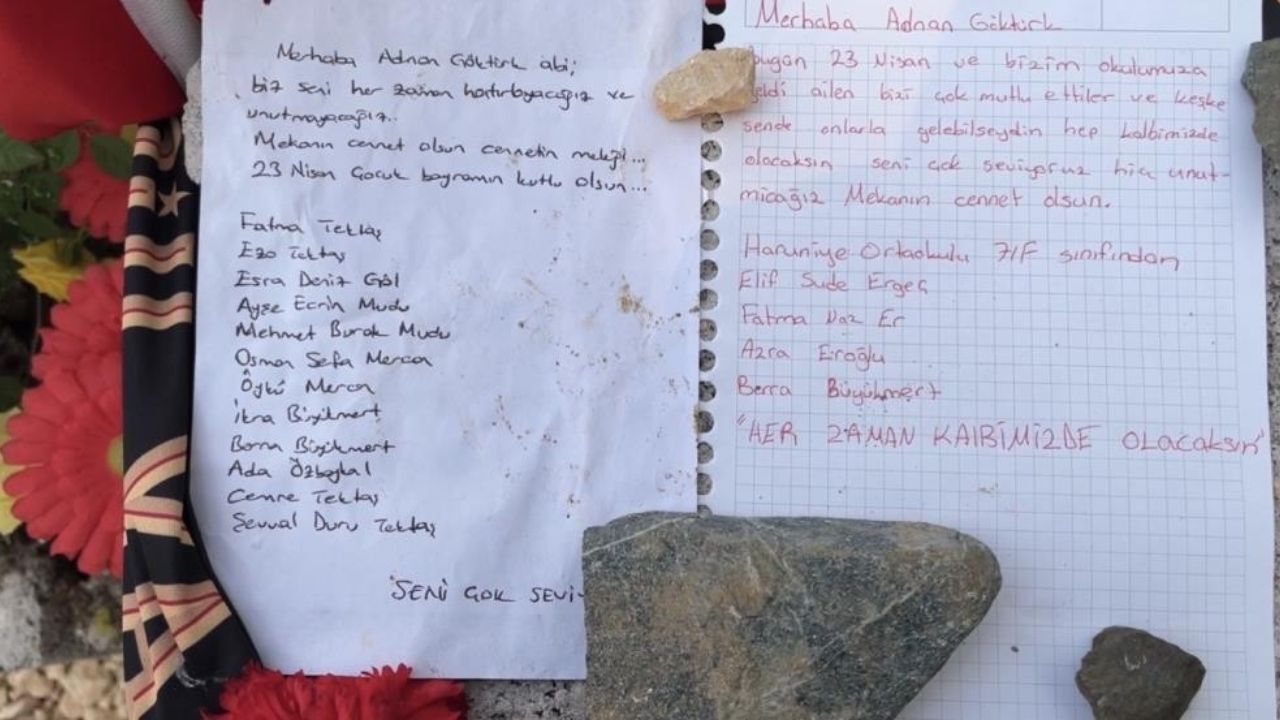 Merhaba Adnan Göktürk abi;
biz seni her zaman hatırlayacağız ve
unutmayacağız..
Mekanın cennet olsun cennetin meleği...
23 Nisan Çocuk bayramın kutlu olsun...
Fatma Tektaş
Ezo Tektaş
Esra Deniz Göl
Ayşe Ecrin Mudu
Mehmet Burak Mudu
Osman Sefa Mercan
Öykü Mercan
İkra Büyükmert
Berra Büyükmert
Ada Özbaykal
Cemre Tektaş
Şevval Duru Tektaş
SENİ ÇOK SEVİ
Merhaba Adnan Göktürk
bugün 23 Nisan ve bizim okulumuza
geldi ailen bizi çok mutlu ettiler ve keşke
sende onlarla gelebilseydin hep kalbimizde
olacaksın seni çok seviyoruz hiç unut-
micağız Mekanın cennet olsun.
Haruniye Ortaokulu 7/F sınıfından
Elif Sude Ergeç
Fatma Naz Er
Azra Eroğlu
Berra Büyükmert
"HER ZAMAN KALBİMİZDE OLACAKSIN"